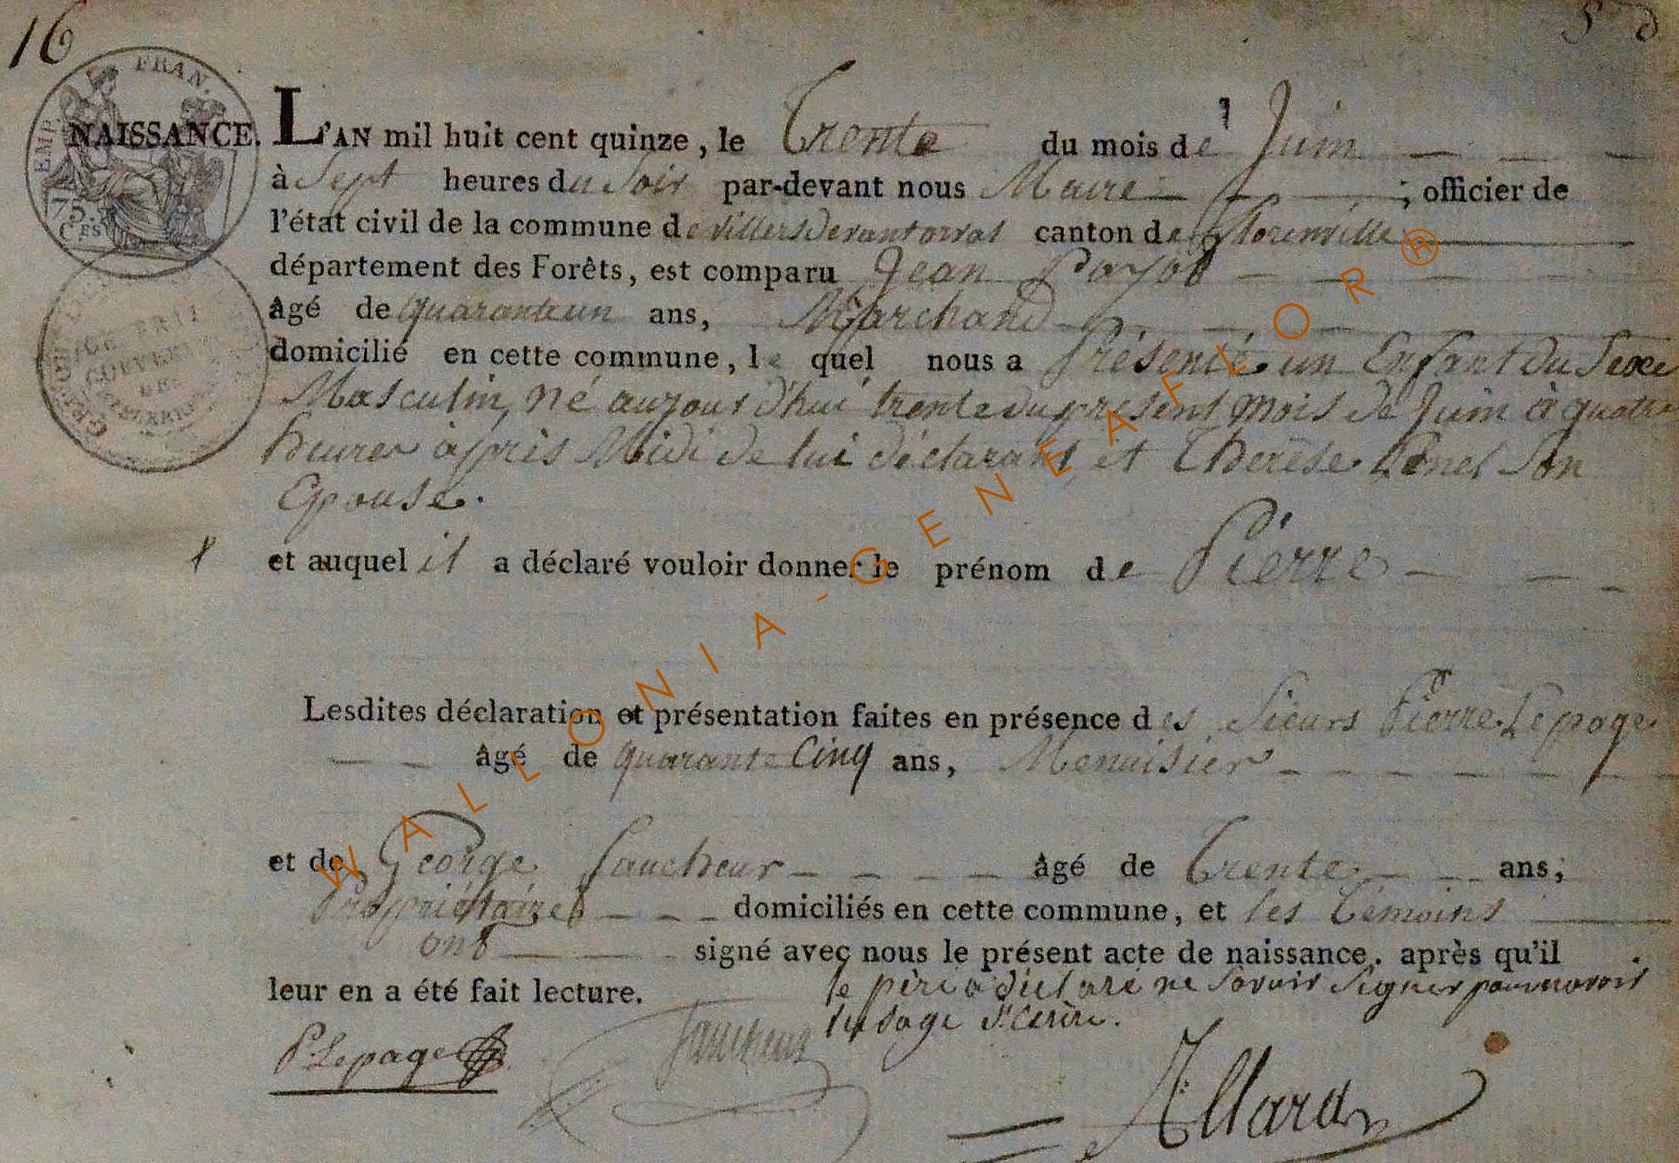 16
EMP. FRAN.
75.
Ces
NAISSANCE. L'AN mil huit cent quinze, le Trente du mois de Juin
à Sept heures du Soir par-devant nous Maire ; officier de
l'état civil de la commune de villers devant orval canton de florenville
département des Forêts, est comparu Jean
âgé de quarante un ans, Marchand
domicilié en cette commune, le quel nous a présenté un Enfant du Sexe
Masculin, né aujourd'hui trente du présent mois de Juin à quatre
heures après Midi de lui déclarant et Thérèse Son
Epouse.
et auquel il a déclaré vouloir donner le prénom de Pierre
Lesdites déclaration et présentation faites en présence des Sieurs Pierre Lepage
âgé de quarante Cinq ans, Menuisier
et de George faucheur âgé de Trente ans;
Propriétaires domiciliés en cette commune, et les Témoins
ont signé avec nous le présent acte de naissance. après qu'il
leur en a été fait lecture. le père a déclaré ne Savoir Signer pour n'avoir
P. Lepage faucheur
Allard
WALLONIA-GENEAFLOR®